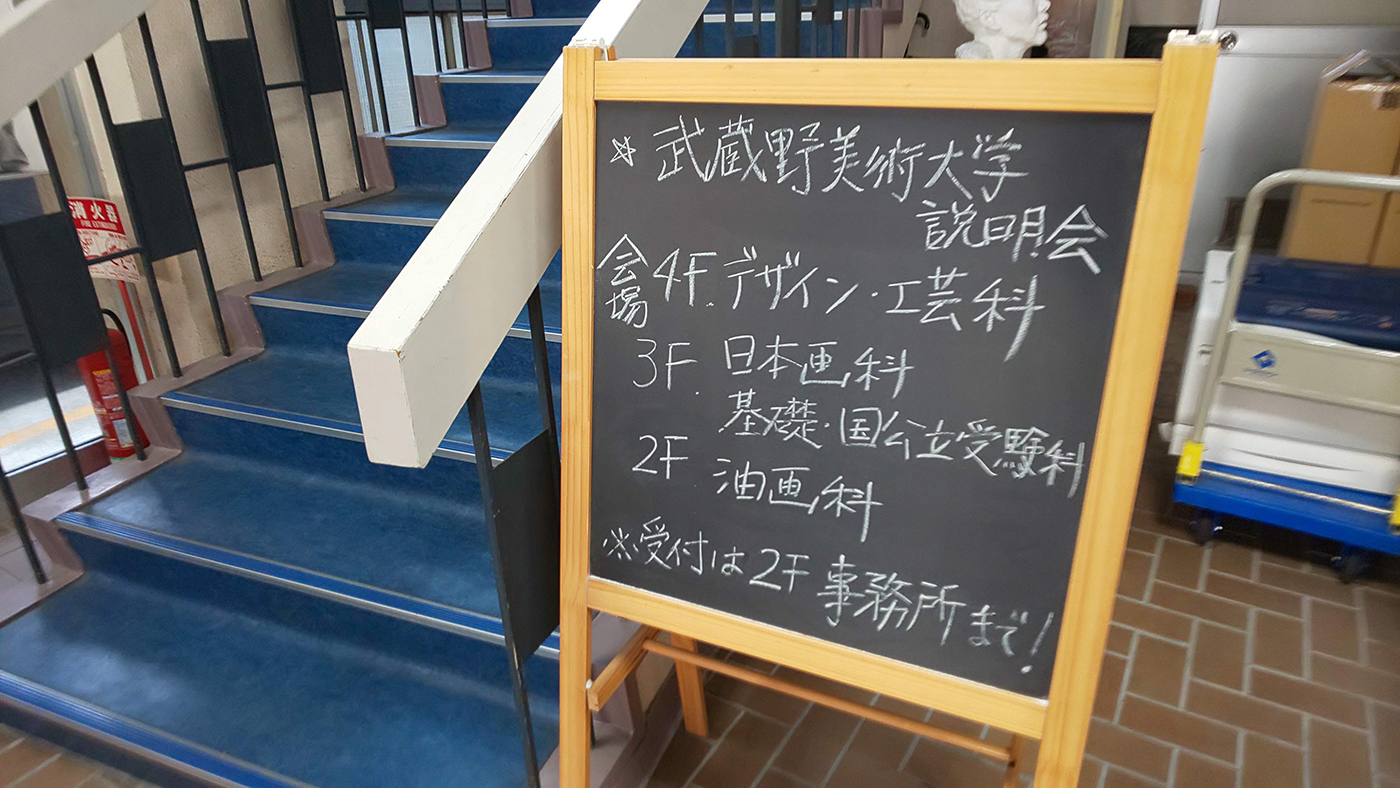 ☆ 武蔵野美術大学
説明会
会場 4F. デザイン・工芸科
3F. 日本画科
基礎・国公立受験科
2F 油画科
※受付は2F事務所まで!
消火器